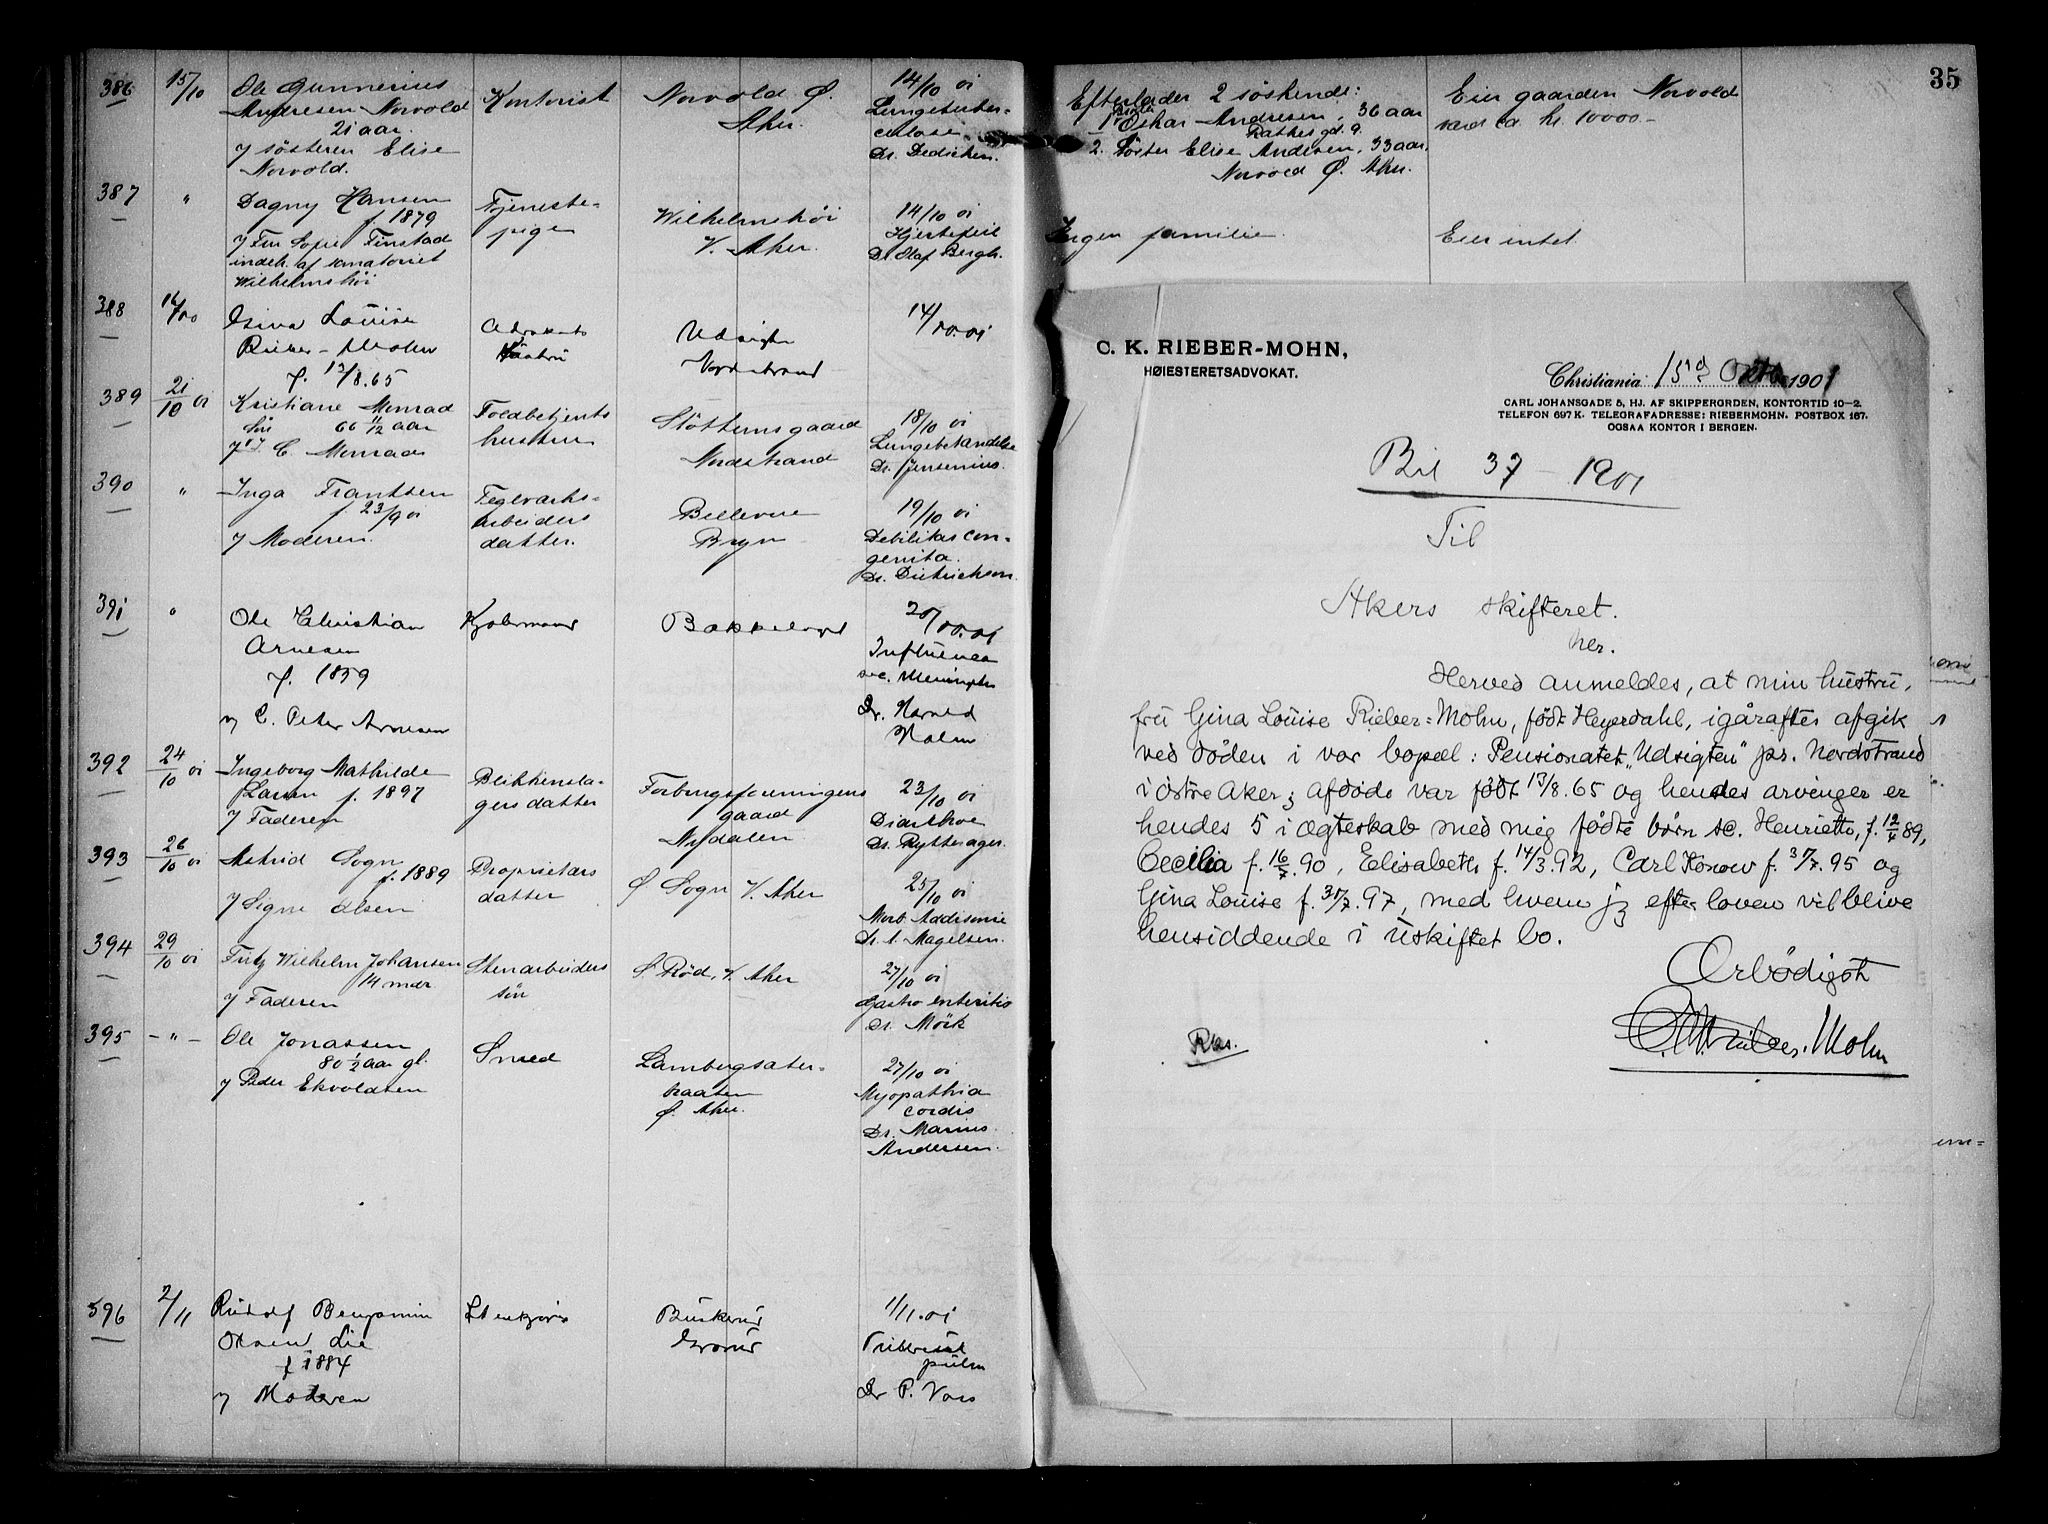 35
386
15/10
Ole Gunnerius
Andresen Norvold
21 aar.
v/ søsteren Elise
Norvold.
Kontorist
Norvold Ø.
Aker.
14/10 01
Lungetuber-
culose
Dr. Dedichen.
Efterlader 2 søskende:
1. Broder Oskar Andresen, 36 aar
Rathkes gd. 9.
2. Søster Elise Andresen, 33 aar,
Norvold Ø. Aker.
Eier gaarden Norvold
værd ca. kr. 10000.-
387
"
Dagny Hansen
f. 1879
v/ Fru Sofie Finstad
indeh. af sanatoriet
Wilhelmshöi
Tjeneste-
pige
Wilhelmshöi
V. Aker.
14/10 01
Hjertefeil
Dr. Olaf Bergh.
Ingen familie.
Eier intet.
388
16/10
Gina Louise
Rieber-Mohn
f. 13/8.65
Advokats
hustru
Udsigten
Nordstrand
14/10.01
389
21/10 01
Kristiane Monrad
66 11/12 aar
v/ C. Monrad
Toldbetjents
hustru
Slöttumsgaard
Nordstrand
18/10 01
Lungebetændelse
Dr. Jensenius.
390
"
Inga Frantsen
f. 23/9 01
v/ Moderen.
Teglværks-
arbeiders
datter.
Bellevue
Bryn
19/10 01
Debilitas con-
genita.
Dr. Dietrichson.
391
"
Ole Christian
Arnesen
f. 1859
v/ C. Peter Arnesen
Kjøbmand
Bækkelaget
20/10.01
Influenca
sec. Meningitis
Dr. Harald
Holm
392
24/10 01
Ingeborg Mathilde
Larsen f. 1897
v/ Faderen
Blikkensla-
gers datter
Forbrugsforeningens
gaard
Nydalen
23/10 01
Diarrhoe
Dr. Rytterager.
393
26/10 01
Astrid Sogn
f. 1889
v/ Signe Olsen
Proprietærs
datter
Ø Sogn V. Aker
25/10 01
Morb. Addisonii
Dr. S. Magelsen.
394
29/10 01
Fritz Wilhelm Johansen
14 mdr
v/ Faderen
Stenarbeiders
sön
S. Röd, V. Aker
27/10 01
Gastro enteritis
Dr. Mörk
395
- " -
Ole Jonassen
80 1/2 aar gl.
v/ Peder Ekvoldsen
Smed
Lambergsæter-
braaten
Ø. Aker.
27/10 01
Myopathia
cordis
Dr. Marius
Andersen.
396
2/11
Rudolf Benjamin
Olsen Lie
f. 1884
v/ Moderen
Buskerud
Grorud
1/11.01
Tubercul
pulm
Dr P. Voss
C. K. RIEBER-MOHN,
HØIESTERETSADVOKAT.
Christiania 15de Octb 1901
CARL JOHANSGADE 5, HJ. AF SKIPPERGRDEN, KONTORTID 10-2.
TELEFON 697 K. TELEGRAFADRESSE: RIEBERMOHN. POSTBOX 167.
OGSAA KONTOR I BERGEN.
Bil 37 - 1901
Til
Akers skifteret.
her.
Herved anmeldes, at min hustru,
fru Gina Louise Rieber-Mohn, født Heyerdahl, igåraftes afgik
ved døden i vor bopæl: Pensionatet „Udsigten" pr. Nordstrand
i østre Aker; afdøde var født 13/8.65 og hendes arvinger er
hendes 5 i ægteskab med mig fødte børn sc. Henriette, f. 12/4 89,
Cecilia f. 16/7.90, Elisabeth f. 14/3.92, Carl Konow f. 30/7.95 og
Gina Louise f. 30/7.97, med hvem jeg efter loven vil blive
hensiddende i uskiftet bo.
Ærbødigst
C. K. Rieber-Mohn